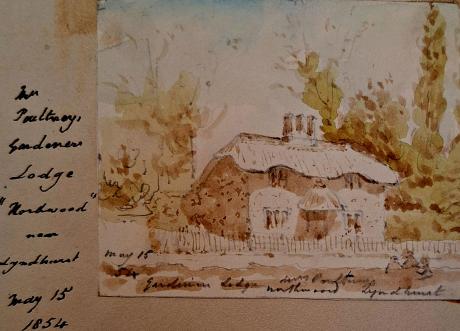 Mr
Poultney's
Gardeners
Lodge
"Northwood"
near
Lyndhurst
May 15
1854
May 15
54
Gardeners Lodge
Northwood Lyndhurst